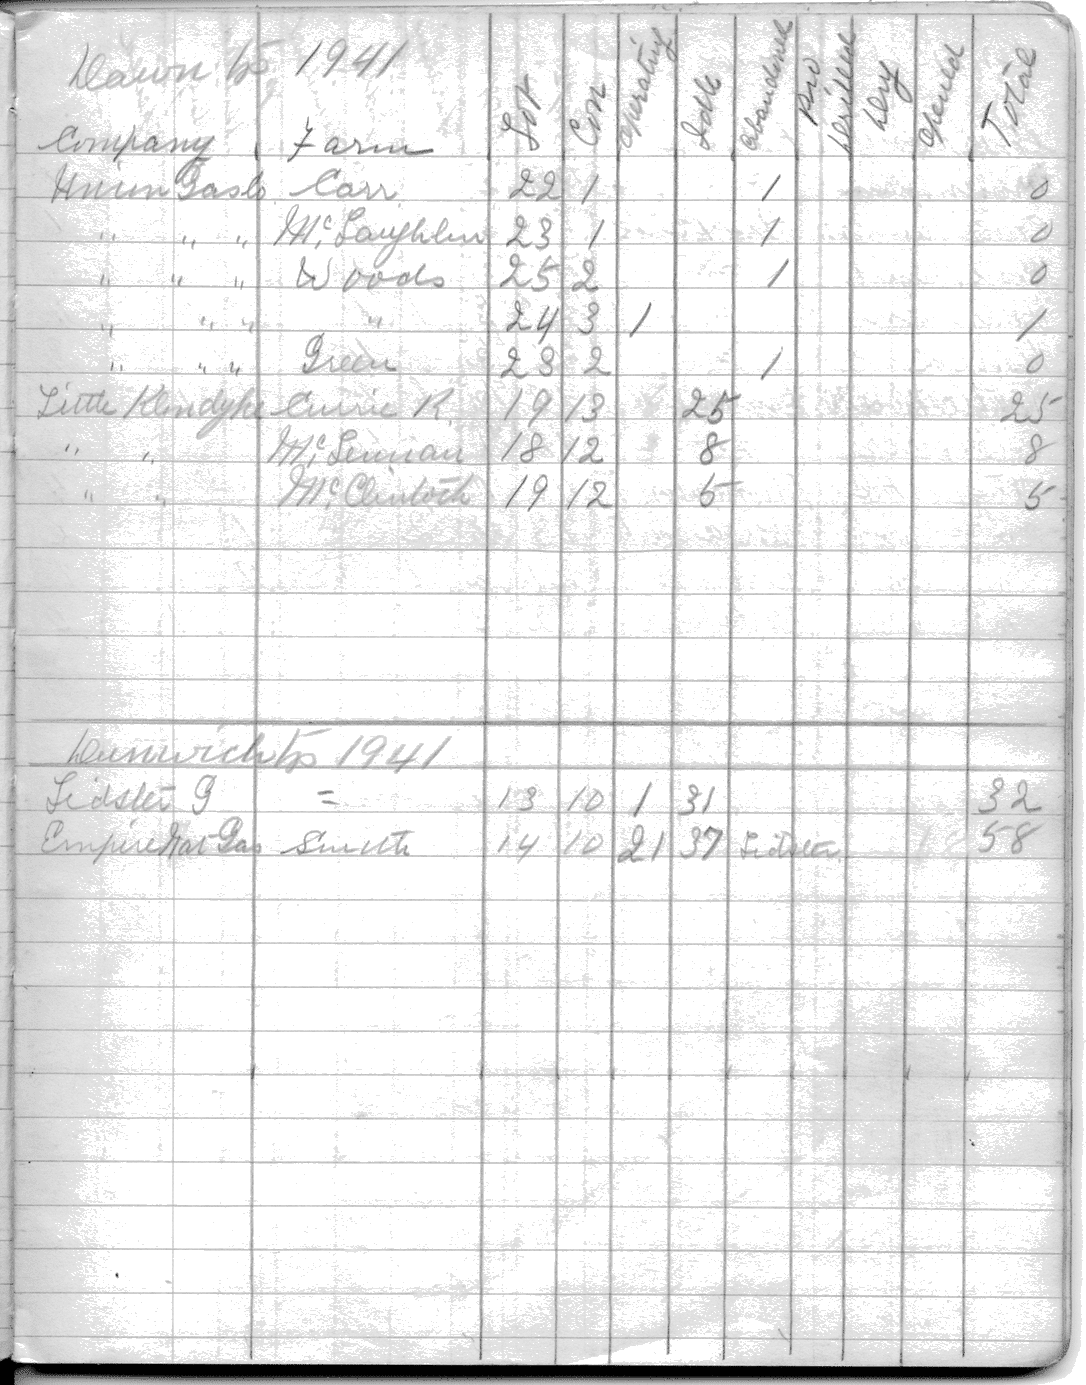 Dawn tp 1941
Company Farm Lot Con Operating Idle Abandoned No Drilled Dry Opened Total
Union Gas Co Carr 22 1 1 0
" " " Mc Laughlin 23 1 1 0
" " " Woods 25 2 1 0
" " " " 24 3 1 1
" " " Green 23 2 1 0
Little Klondyke Currie R 19 13 25 25
" " Mc Lennan 18 12 8 8
" " Mc Clintock 19 12 5 5
Dunwich tp 1941
Lidster G = 13 10 1 31 32
Empire Nat Gas Smith 14 10 21 37 Lidster 58